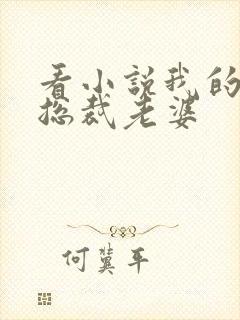 看小说我的
总裁老婆
何冀平